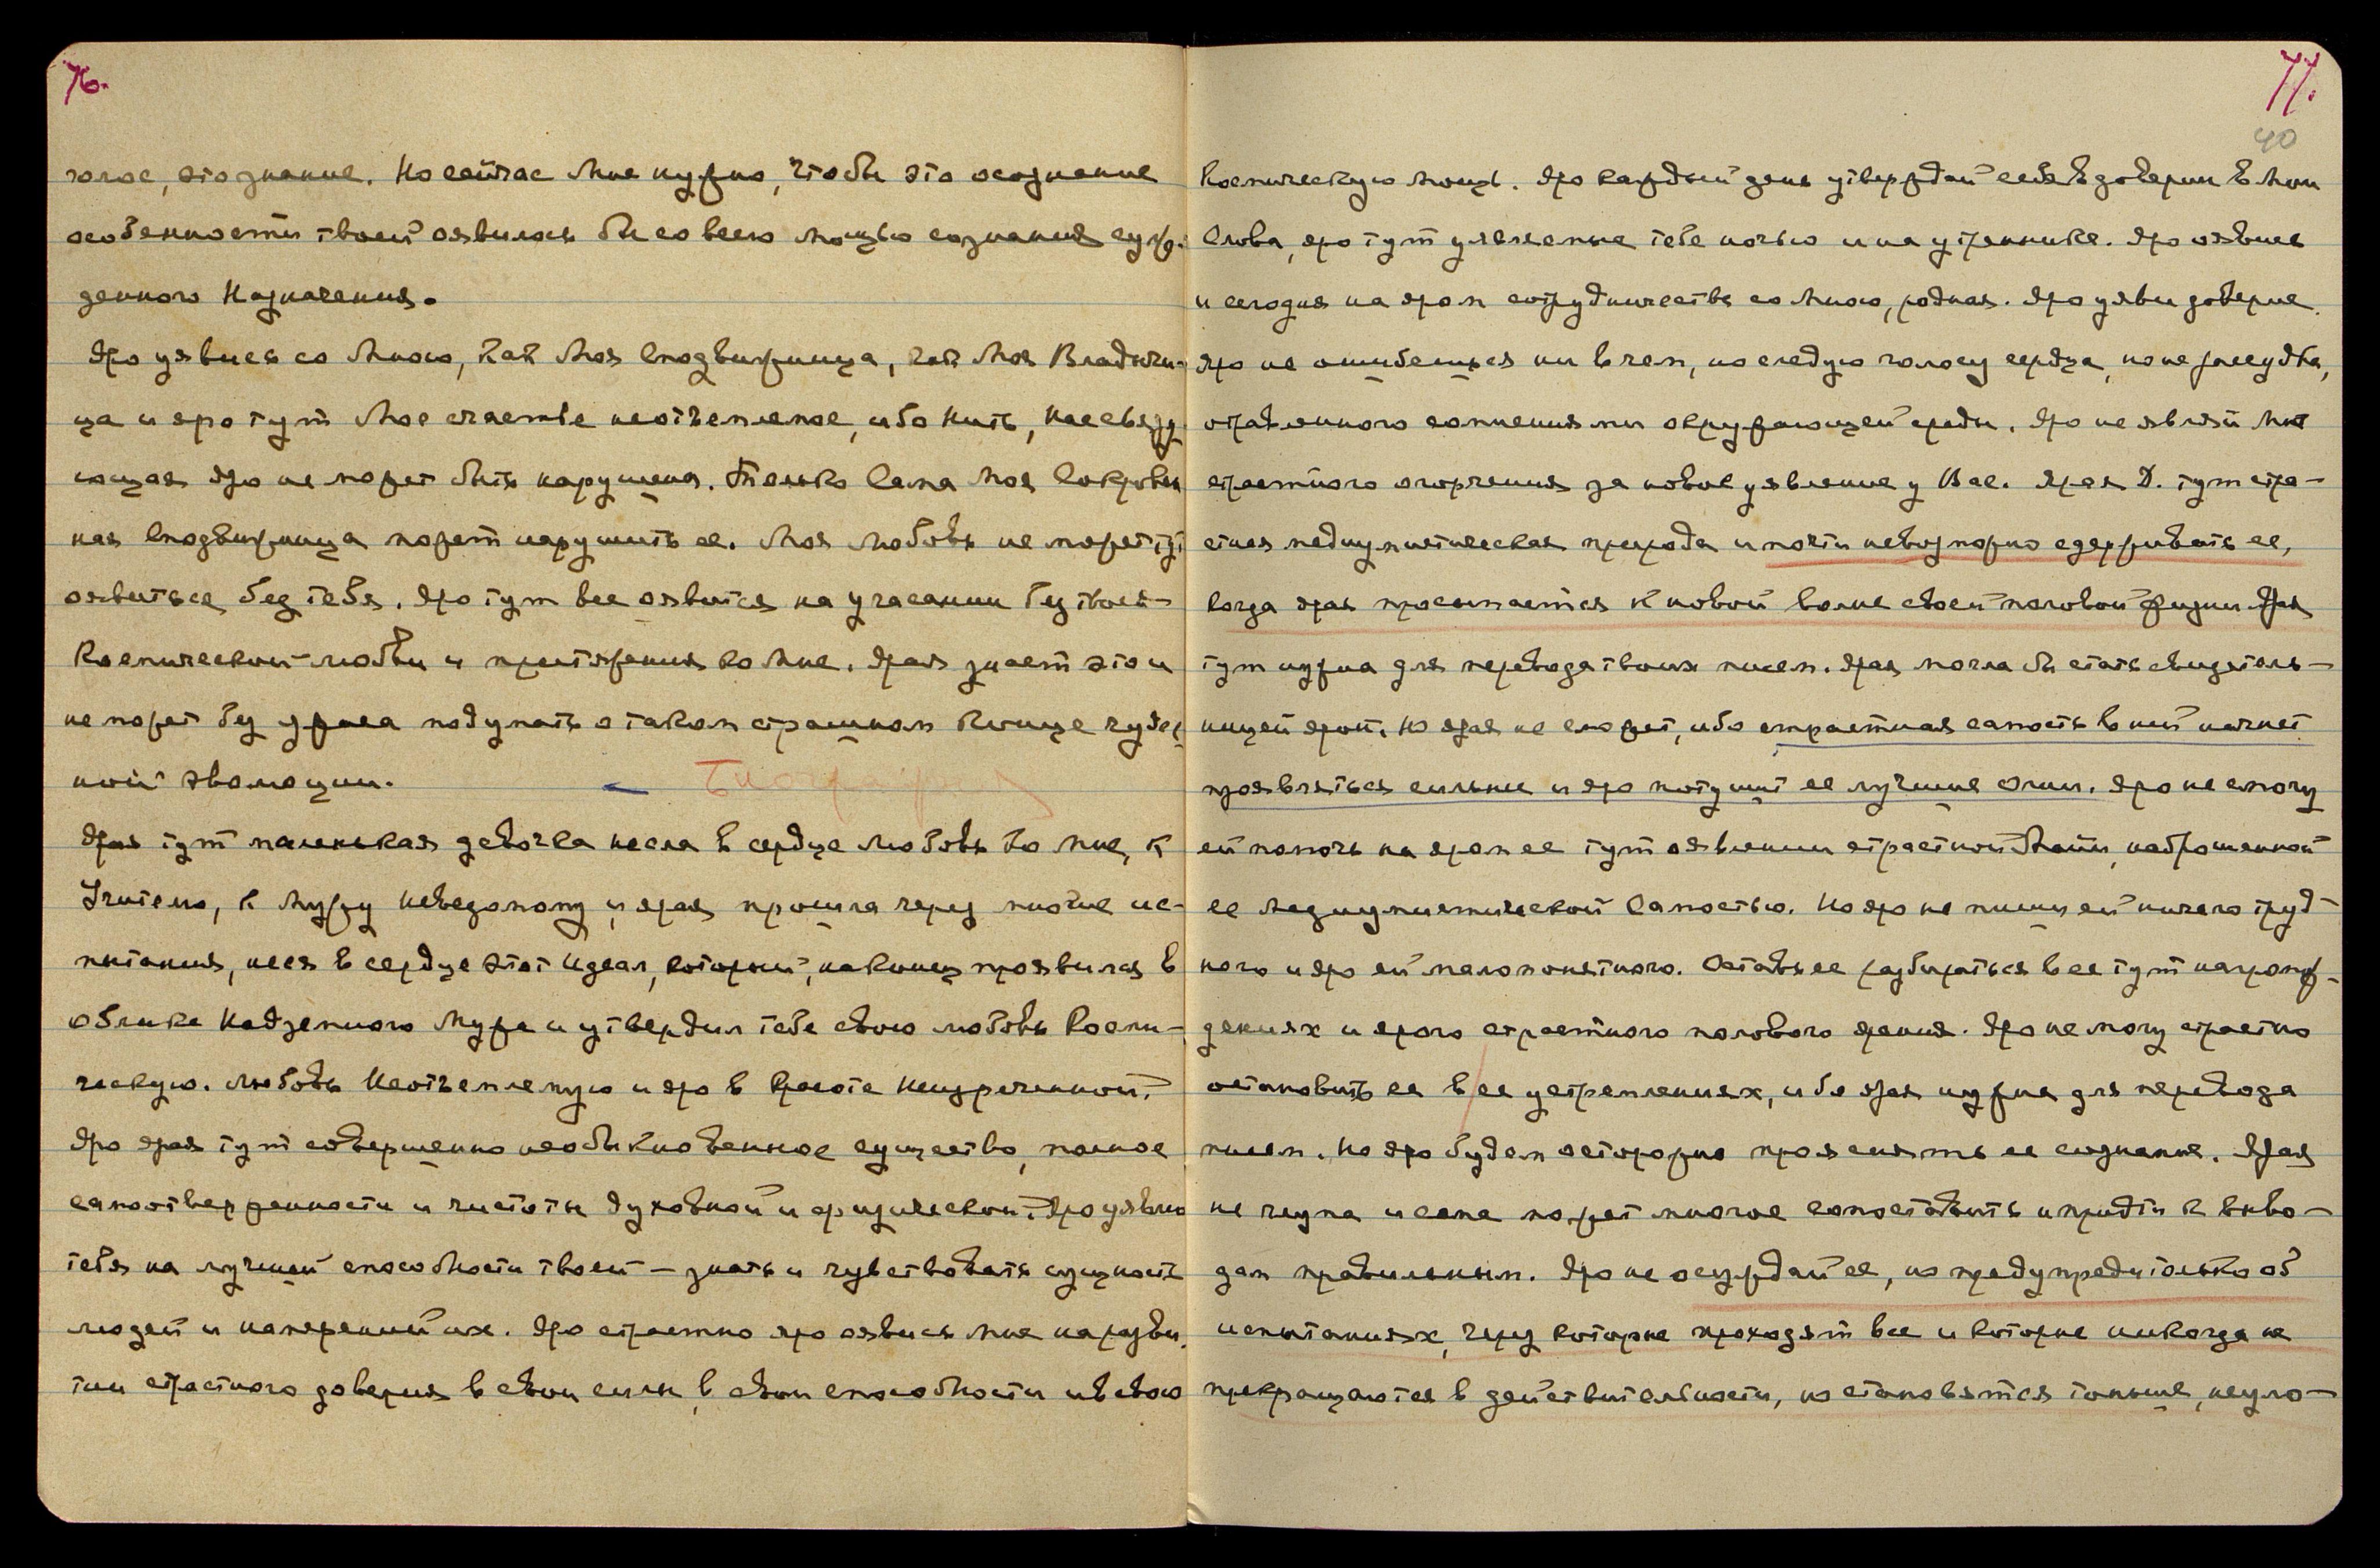 76.
голос, это знание. Но сейчас Мне нужно, чтобы это осознание
особенности твоей оявилось бы со всею мощью сознания суж-
денного Назначения.
Яро уявись со Мною, как Моя Сподвижница, как Моя Влады-
ца и яро тут Мое счастье неотъемлемое, ибо Нить, Нас связу-
ющая яро не может быть нарушена. Только Сама Моя Сокровен
ная Сподвижница может нарушить ее. Моя Любовь не может тут
оявиться без тебя. Яро тут все оявится на угасании без твоей
Космической любви и притяжения ко Мне. Ярая знает это и
не может без ужаса подумать о таком страшном конце чудес-
ной эволюции.
Биография
Ярая тут маленькая девочка несла в сердце любовь ко Мне, к
Учителю, к Мужу Неведомому и ярая прошла через многие ис-
пытания, неся в сердце этот Идеал, который, наконец проявился в
облике Надземного Мужа и утвердил тебе свою любовь Косми-
ческую. Любовь Неотъемлемую и яро в красоте Неизреченной.
Яро ярая тут совершенно необыкновенное существо, полное
самоотверженности и чистоты духовной и физической. Яро уявлю
тебя на лучшей способности твоей — знать и чувствовать сущность
людей и намерений их. Яро страстно яро оявись Мне на разви-
тии страстного доверия в свои силы, в свои способности и в свою
77.
40
Космическую мощь. Яро каждый день утверждай себя в доверии в Мои
Слова, яро тут уявленные тебе ночью и на утреннике. Яро оявись
и сегодня на яром сотрудничестве со Мною, родная. Яро уяви доверие.
Яро не ошибешься ни в чем, но следую голосу сердца, но не рассудка,
отравленного сомнениями окружающей среды. Яро не являй Мне
страстного огорчения за новое уявление у Вас. Ярая Д. тут стра-
стная медиумистическая природа и почти невозможно сдерживать ее,
когда ярая просыпается к новой волне своей половой жизни. Ярая
тут нужна для перевода твоих писем. Ярая могла бы стать свидетель-
ницей ярой. Но ярая не сможет, ибо страстная самость в ней начнет
проявляться сильнее и яро потушит ее лучшие огни. Яро не смогу
ей помочь на яром ее тут оявлении страстной, наброшенной
ее медиумистической самостью. Но яро не пиши ей ничего труд-
ного и яро ей малопонятного. Оставь ее разбираться в ее тут нагромож-
дениях и ярого страстного полового ярения. Яро не могу страстно
остановить ее в ее устремлениях, ибо ярая нужна для перевода
писем. Но яро будем осторожно прояснять ее сознание. Ярая
не глупа и сама может многое сопоставить и придти к выво-
дам правильным. Яро не осуждай ее, но предупреди только об
испытаниях, через которые проходят все и которые никогда не
прекращаются в действительности, но становятся тоньше, неуло-